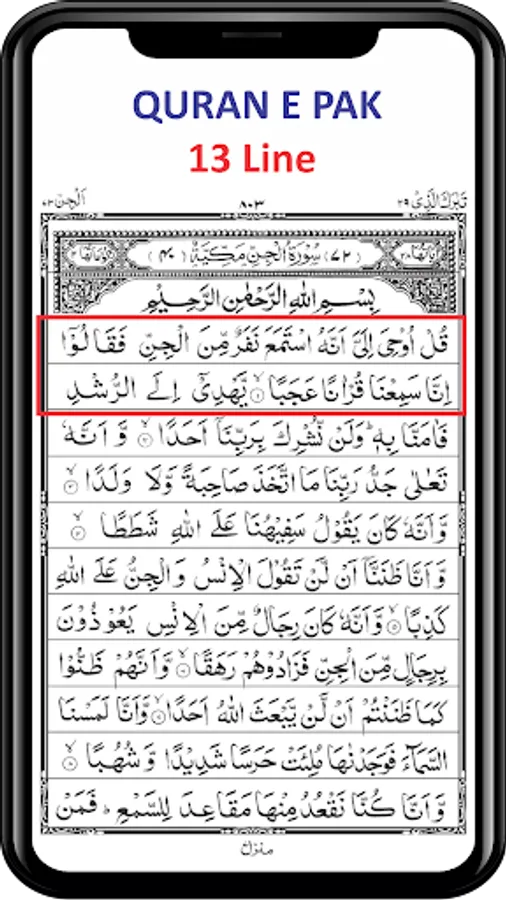 QURAN E PAK
13 Line
تَبٰرَكَ الَّذِیْ ۲۹
۸۰۳
اَلْجِنّ ۷۲
(۷۲) سُوْرَةُ الْجِنِّ مَكِّیَّةٌ (۴۰)
بِسْمِ اللّٰهِ الرَّحْمٰنِ الرَّحِیْمِ
قُلْ اُوْحِیَ اِلَیَّ اَنَّهُ اسْتَمَعَ نَفَرٌ مِّنَ الْجِنِّ فَقَالُوْۤا
اِنَّا سَمِعْنَا قُرْاٰنًا عَجَبًا ۙ۱ یَّهْدِیْۤ اِلَی الرُّشْدِ
فَاٰمَنَّا بِهٖ ؕ وَلَنْ نُّشْرِكَ بِرَبِّنَاۤ اَحَدًا ۙ۲ وَّ اَنَّهٗ
تَعٰلٰی جَدُّ رَبِّنَا مَا اتَّخَذَ صَاحِبَةً وَّلَا وَلَدًا ۙ۳
وَّ اَنَّهٗ كَانَ یَقُوْلُ سَفِیْهُنَا عَلَی اللّٰهِ شَطَطًا ۙ۴
وَّ اَنَّا ظَنَنَّاۤ اَنْ لَّنْ تَقُوْلَ الْاِنْسُ وَ الْجِنُّ عَلَی اللّٰهِ
كَذِبًا ۙ۵ وَّ اَنَّهٗ كَانَ رِجَالٌ مِّنَ الْاِنْسِ یَعُوْذُوْنَ
بِرِجَالٍ مِّنَ الْجِنِّ فَزَادُوْهُمْ رَهَقًا ۙ۶ وَّ اَنَّهُمْ ظَنُّوْا
كَمَا ظَنَنْتُمْ اَنْ لَّنْ یَّبْعَثَ اللّٰهُ اَحَدًا ۙ۷ وَّ اَنَّا لَمَسْنَا
السَّمَآءَ فَوَجَدْنٰهَا مُلِئَتْ حَرَسًا شَدِیْدًا وَّ شُهُبًا ۙ۸
وَّ اَنَّا كُنَّا نَقْعُدُ مِنْهَا مَقَاعِدَ لِلسَّمْعِ ؕ فَمَنْ
منزل